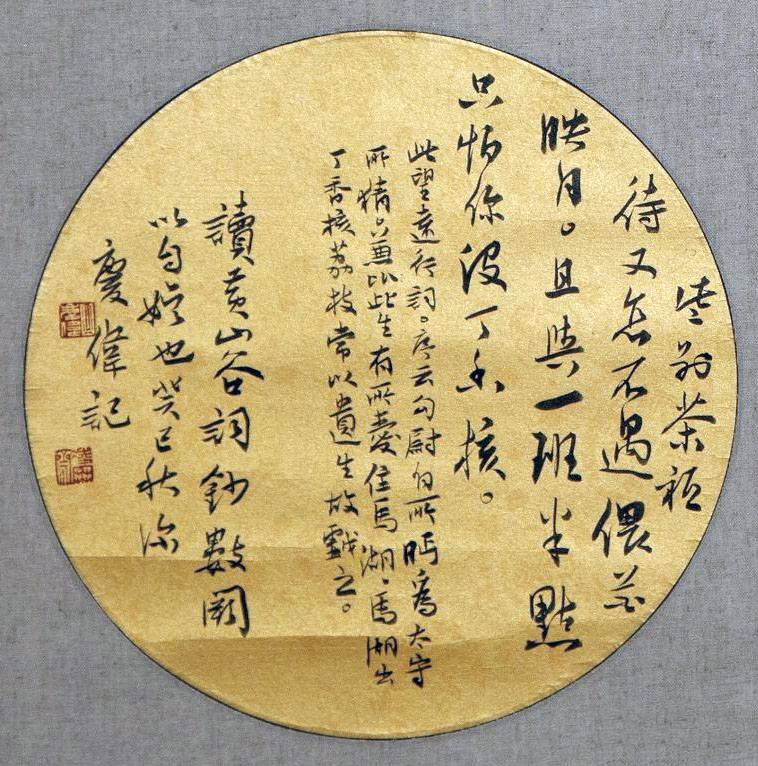 些別茶祗
待又怎不遇偎花
映月。且與一班半點
只怕你没丁香核。
此望遠行詞。序云勾尉有所眄爲太守
所猜。兼此生有所愛住馬湖、馬湖出
丁香核荔枝常以遺生故戲之。
讀黄山谷詞鈔數闋
以自娱也癸巳秋深
慶偉記